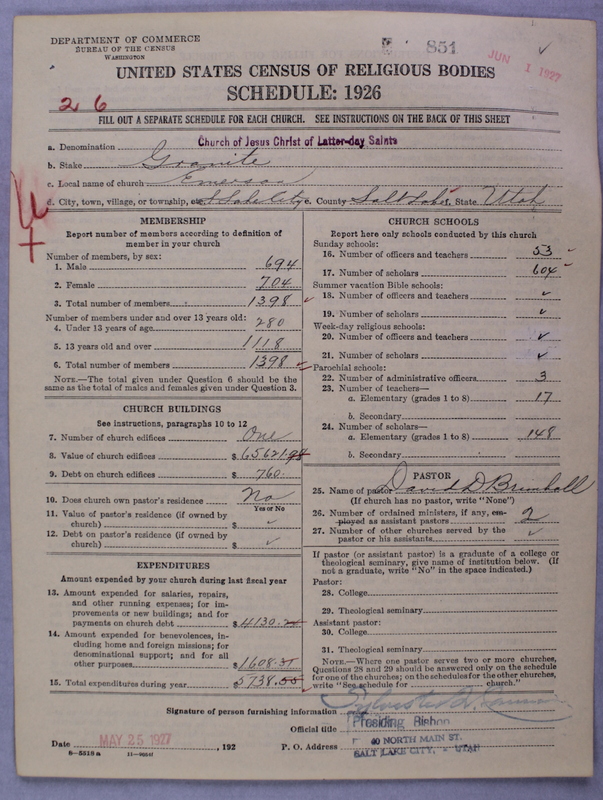 DEPARTMENT OF COMMERCE
BUREAU OF THE CENSUS
WASHINGTON
851
JUN 1 1927
UNITED STATES CENSUS OF RELIGIOUS BODIES
SCHEDULE: 1926
26
FILL OUT A SEPARATE SCHEDULE FOR EACH CHURCH. SEE INSTRUCTIONS ON THE BACK OF THIS SHEET
a. Denomination Church of Jesus Christ of Latter-day Saints
b. Stake Granite
c. Local name of church Emerson
d. City, town, village, or township, S. Lake City e. County Salt Lake, State Utah
MEMBERSHIP
Report number of members according to definition of
member in your church
Number of members, by sex:
1. Male 694
2. Female 704
3. Total number of members 1398
Number of members under and over 13 years old:
4. Under 13 years of age 280
5. 13 years old and over 1118
6. Total number of members 1398
NOTE.—The total given under Question 6 should be the
same as the total of males and females given under Question 3.
CHURCH BUILDINGS
See instructions, paragraphs 10 to 12
7. Number of church edifices One
8. Value of church edifices $65621.94
9. Debt on church edifices $760.
10. Does church own pastor's residence No
Yes or No
11. Value of pastor's residence (if owned by
church) $ ✓
12. Debt on pastor's residence (if owned by
church) $ ✓
EXPENDITURES
Amount expended by your church during last fiscal year
13. Amount expended for salaries, repairs,
and other running expenses; for im-
provements or new buildings; and for
payments on church debt $4130.
14. Amount expended for benevolences, in-
cluding home and foreign missions; for
denominational support; and for all
other purposes $1608.31
15. Total expenditures during year $5738.55
CHURCH SCHOOLS
Report here only schools conducted by this church
Sunday schools:
16. Number of officers and teachers 53
17. Number of scholars 604
Summer vacation Bible schools:
18. Number of officers and teachers ✓
19. Number of scholars ✓
Week-day religious schools:
20. Number of officers and teachers ✓
21. Number of scholars ✓
Parochial schools:
22. Number of administrative officers 3
23. Number of teachers—
a. Elementary (grades 1 to 8) 17
b. Secondary
24. Number of scholars—
a. Elementary (grades 1 to 8) 148
b. Secondary
PASTOR
25. Name of pastor David D. Brimhall
(If church has no pastor, write "None")
26. Number of ordained ministers, if any, em-
ployed as assistant pastors 2
27. Number of other churches served by the
pastor or his assistants ✓
If pastor (or assistant pastor) is a graduate of a college or
theological seminary, give name of institution below. (If
not a graduate, write "No" in the space indicated.)
Pastor:
28. College
29. Theological seminary
Assistant pastor:
30. College
31. Theological seminary
NOTE.—Where one pastor serves two or more churches,
Questions 28 and 29 should be answered only on the schedule
for one of the churches; on the schedules for the other churches,
write "See schedule for church."
Signature of person furnishing information Sylvester Q. Cannon
Official title Presiding Bishop
Date MAY 25 1927, 192 P. O. Address 40 NORTH MAIN ST.
SALT LAKE CITY, UTAH